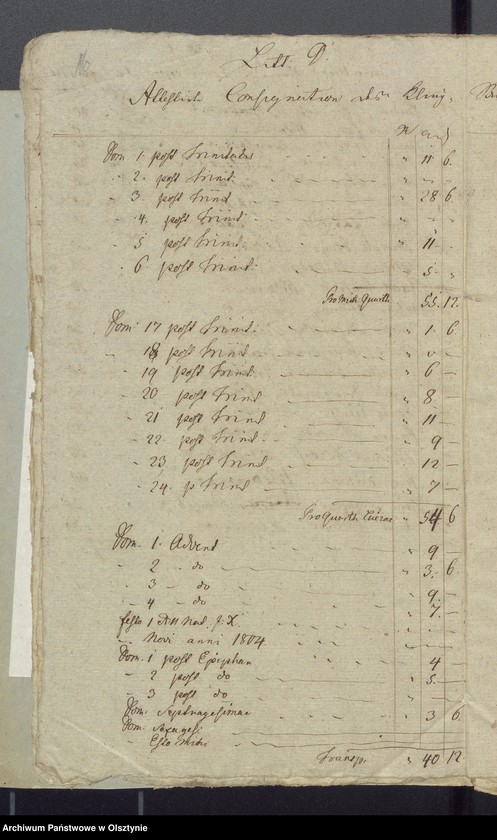 Litt. D.
Consignation des Kling
Dom 1. post Trinitatis " 11 6.
- 2. post Trinit.
- 3 post Trinit " 28 6
- 4. post Trinit
- 5 post Trinit. 11 -
- 6 post Trinit. " 5 "
Quartl 55. 12.
Dom: 17 post Trinit. " 1. 6.
- 18 post Trinit
19 post Trinit. " 6 -
- 20 post Trinit " 8 -
- 21 post Trinit " 11 -
- 22. post Trinit. " 9 -
- 23. post Trinit " 12 -
- 24. p Trinit " 7 -
Pro Quartl " 54 6
Dom. 1. Advent " 9 -
- 2 - do " 3. 6.
- 3 - do " 9. -
- 4 - do " 7. -
festo 1 Nat. J. X.
- Novi anni 1804
Dom. 1 post Epiphan 4 -
- 2 post do " 5 -
- 3 post do
Dom. Septuagesimae " 3 6
Dom. Sexages.
- Esto mihi
Transp. " 40 12
Archiwum Państwowe w Olsztynie